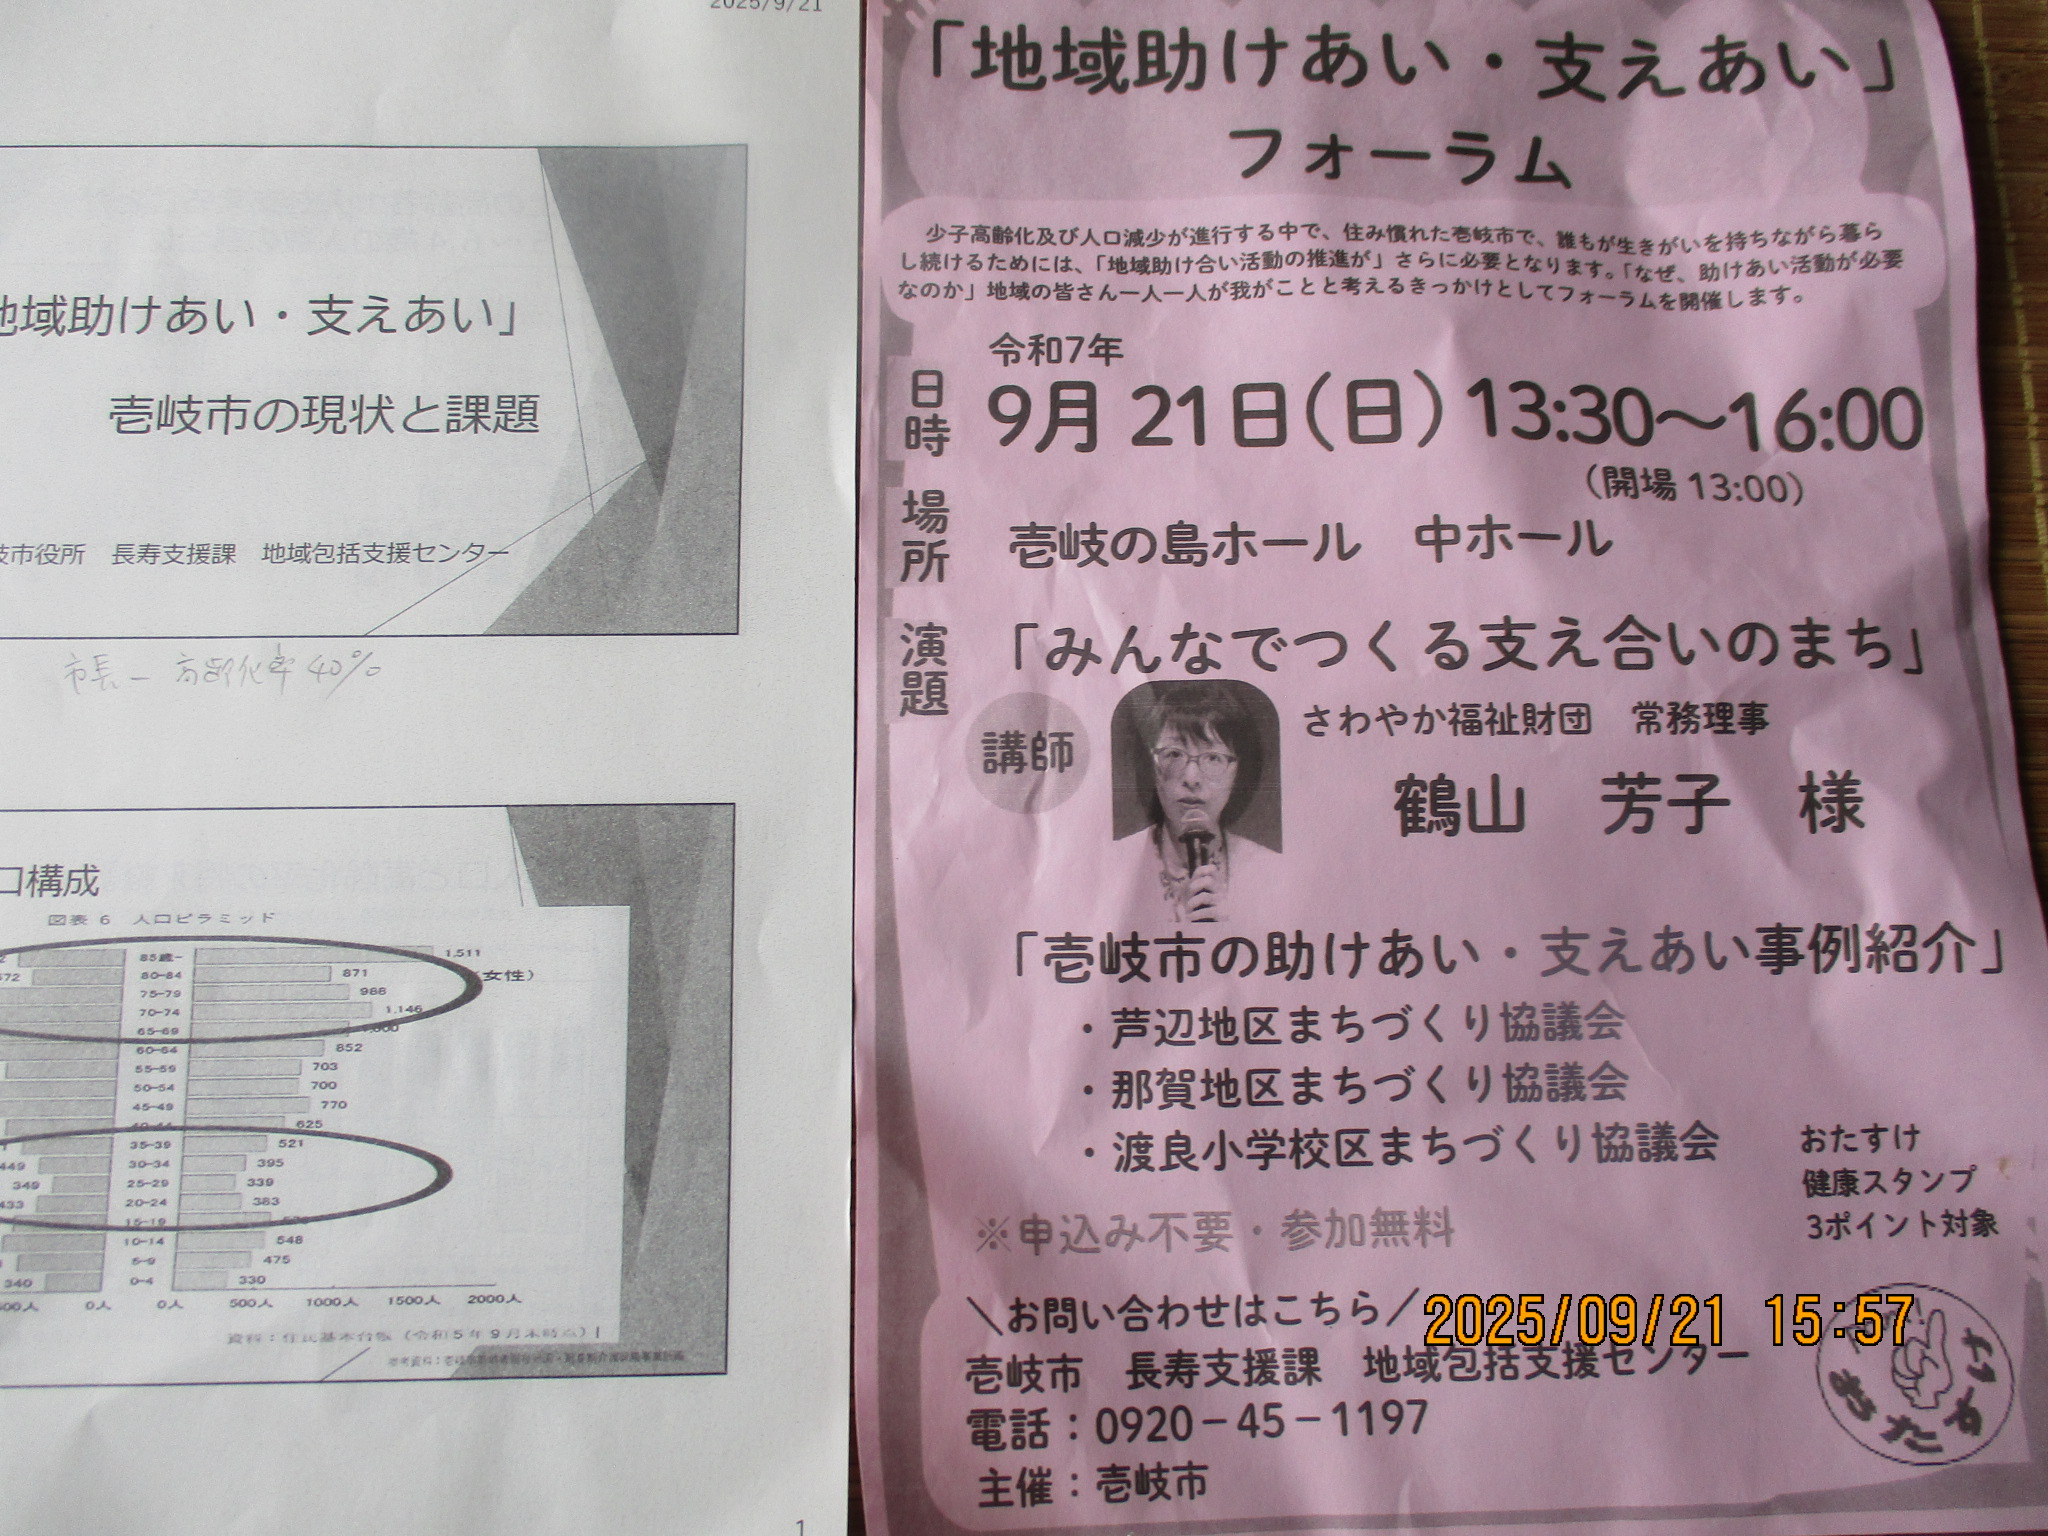 2025/9/21
地域助けあい・支えあい」
壱岐市の現状と課題
岐市役所　長寿支援課　地域包括支援センター
市長－高齢化率40%
口構成
図表 6　人口ピラミッド
85歳- 1,511
572 80-84 871 （女性）
75-79 988
70-74 1,146
65-69
60-64 852
55-59 703
50-54 700
45-49 770
40-44 625
35-39 521
449 30-34 395
349 25-29 339
433 20-24 383
15-19
10-14 548
5-9 475
340 0-4 330
500人 0人 0人 500人 1000人 1500人 2000人
資料：住民基本台帳（令和5年9月末時点）
1
「地域助けあい・支えあい」
フォーラム
少子高齢化及び人口減少が進行する中で、住み慣れた壱岐市で、誰もが生きがいを持ちながら暮ら
し続けるためには、「地域助け合い活動の推進が」さらに必要となります。「なぜ、助けあい活動が必要
なのか」地域の皆さん一人一人が我がことと考えるきっかけとしてフォーラムを開催します。
日時
令和7年
9月21日(日) 13:30～16:00
（開場 13:00）
場所
壱岐の島ホール　中ホール
演題
「みんなでつくる支え合いのまち」
講師
さわやか福祉財団　常務理事
鶴山　芳子　様
「壱岐市の助けあい・支えあい事例紹介」
・芦辺地区まちづくり協議会
・那賀地区まちづくり協議会
・渡良小学校区まちづくり協議会
おたすけ
健康スタンプ
3ポイント対象
※申込み不要・参加無料
＼お問い合わせはこちら／
壱岐市　長寿支援課　地域包括支援センター
電話：0920－45－1197
主催：壱岐市
2025/09/21 15:57